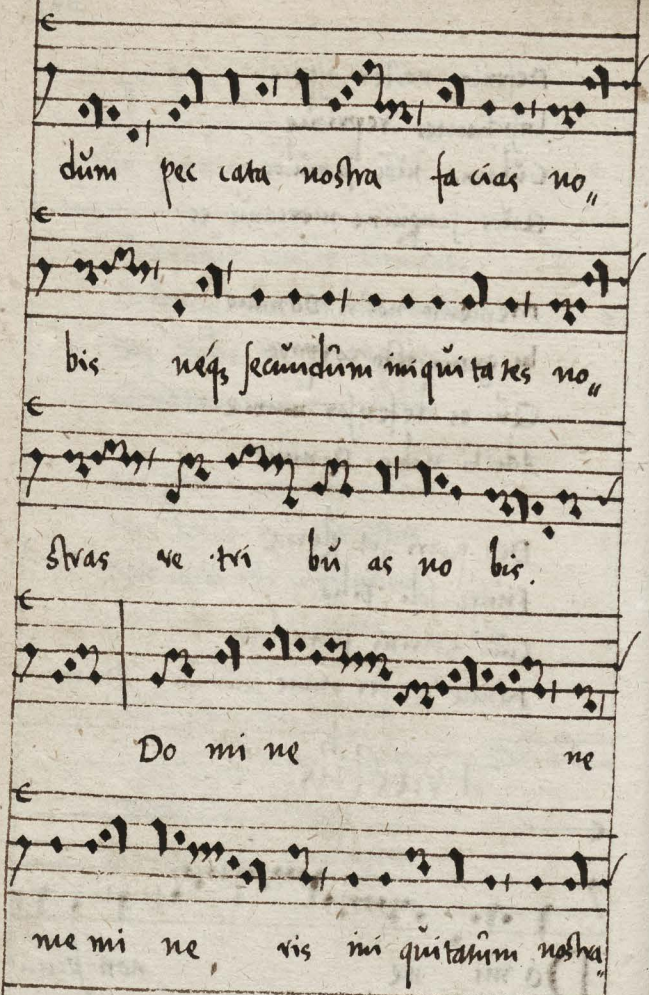 dum pec cata nostra fa cias no„
bis neqꝫ secundum iniquita tes no„
stras re tri bu as no bis.
Do mi ne ne
me mi ne ris ini quitatum nostra„